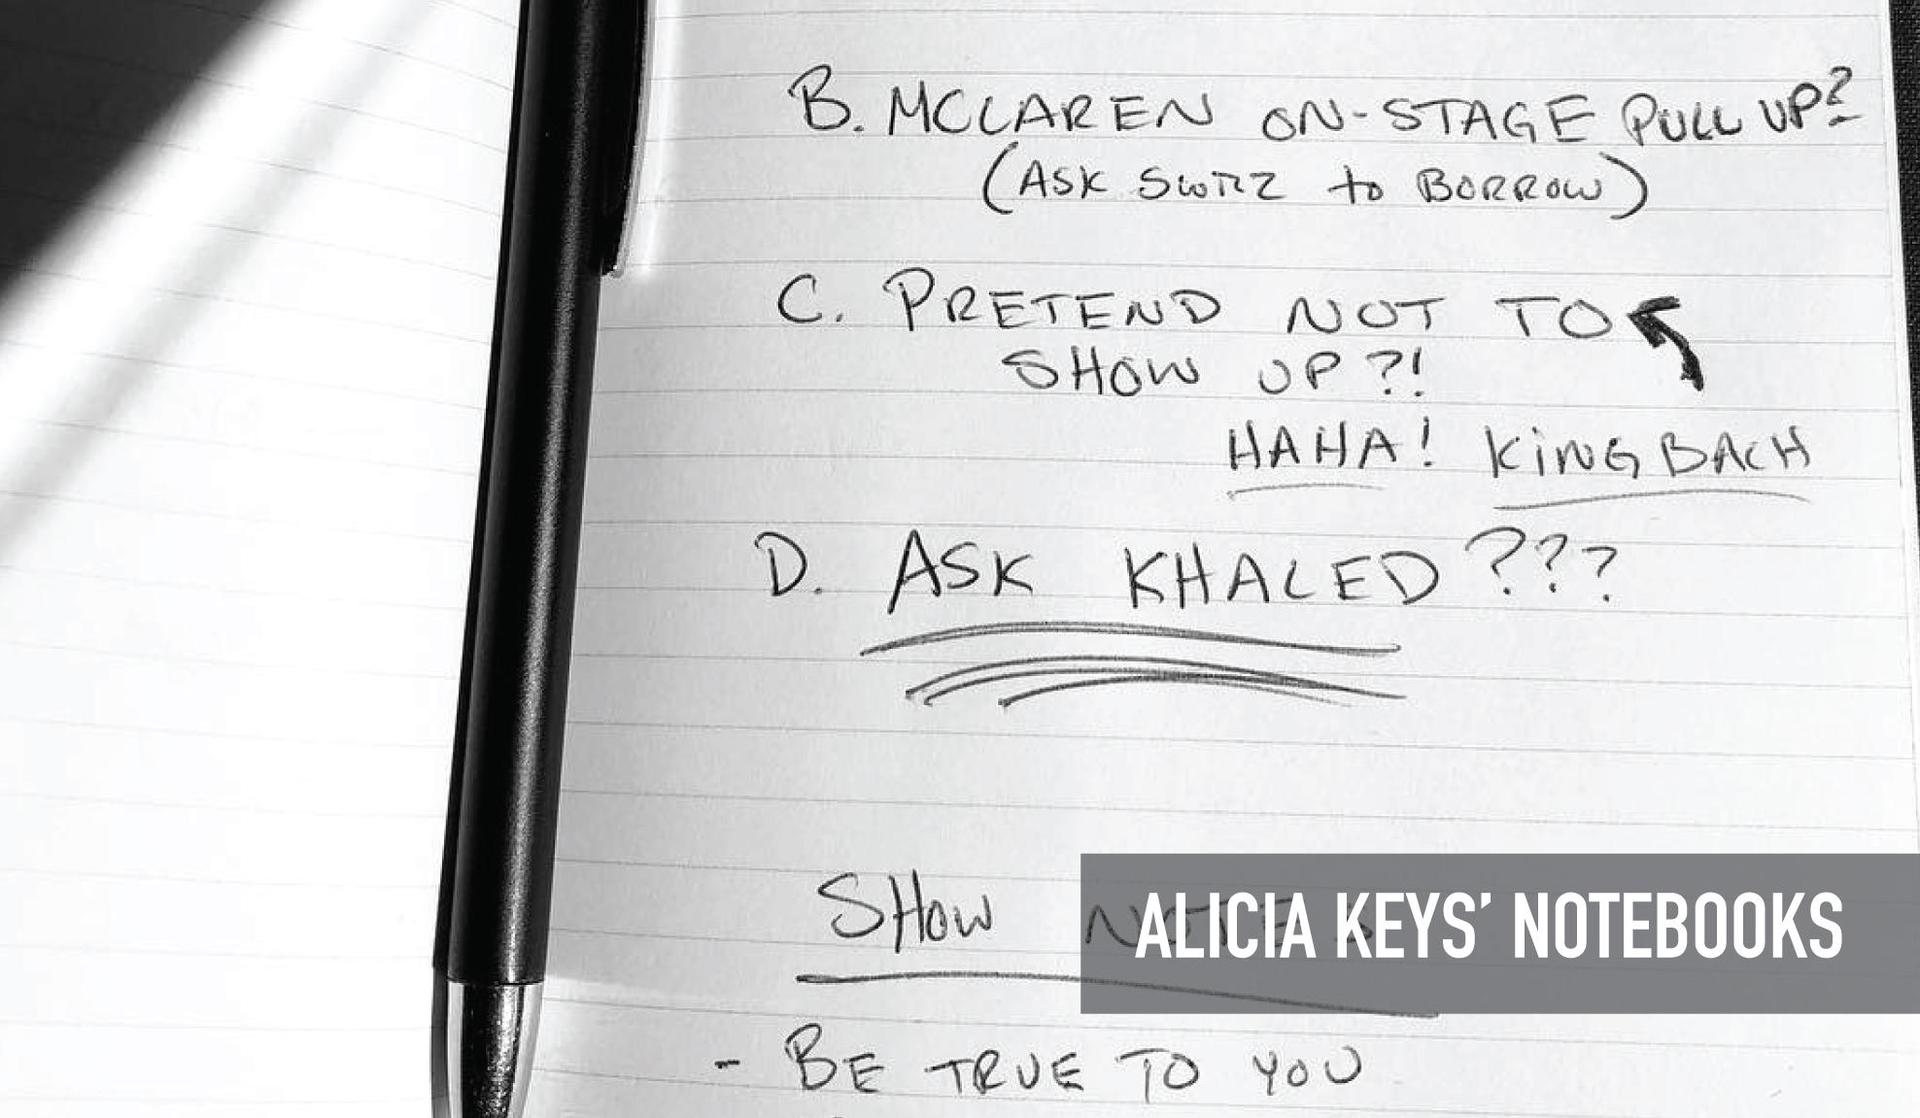 B. MCLAREN ON-STAGE PULL UP?
(ASK SWIZZ to BORROW)
C. PRETEND NOT TO
SHOW UP?!
HAHA! KiNG BACH
D. ASK KHALED???
SHOW NOTES
ALICIA KEYS' NOTEBOOKS
- BE TRUE TO YOU